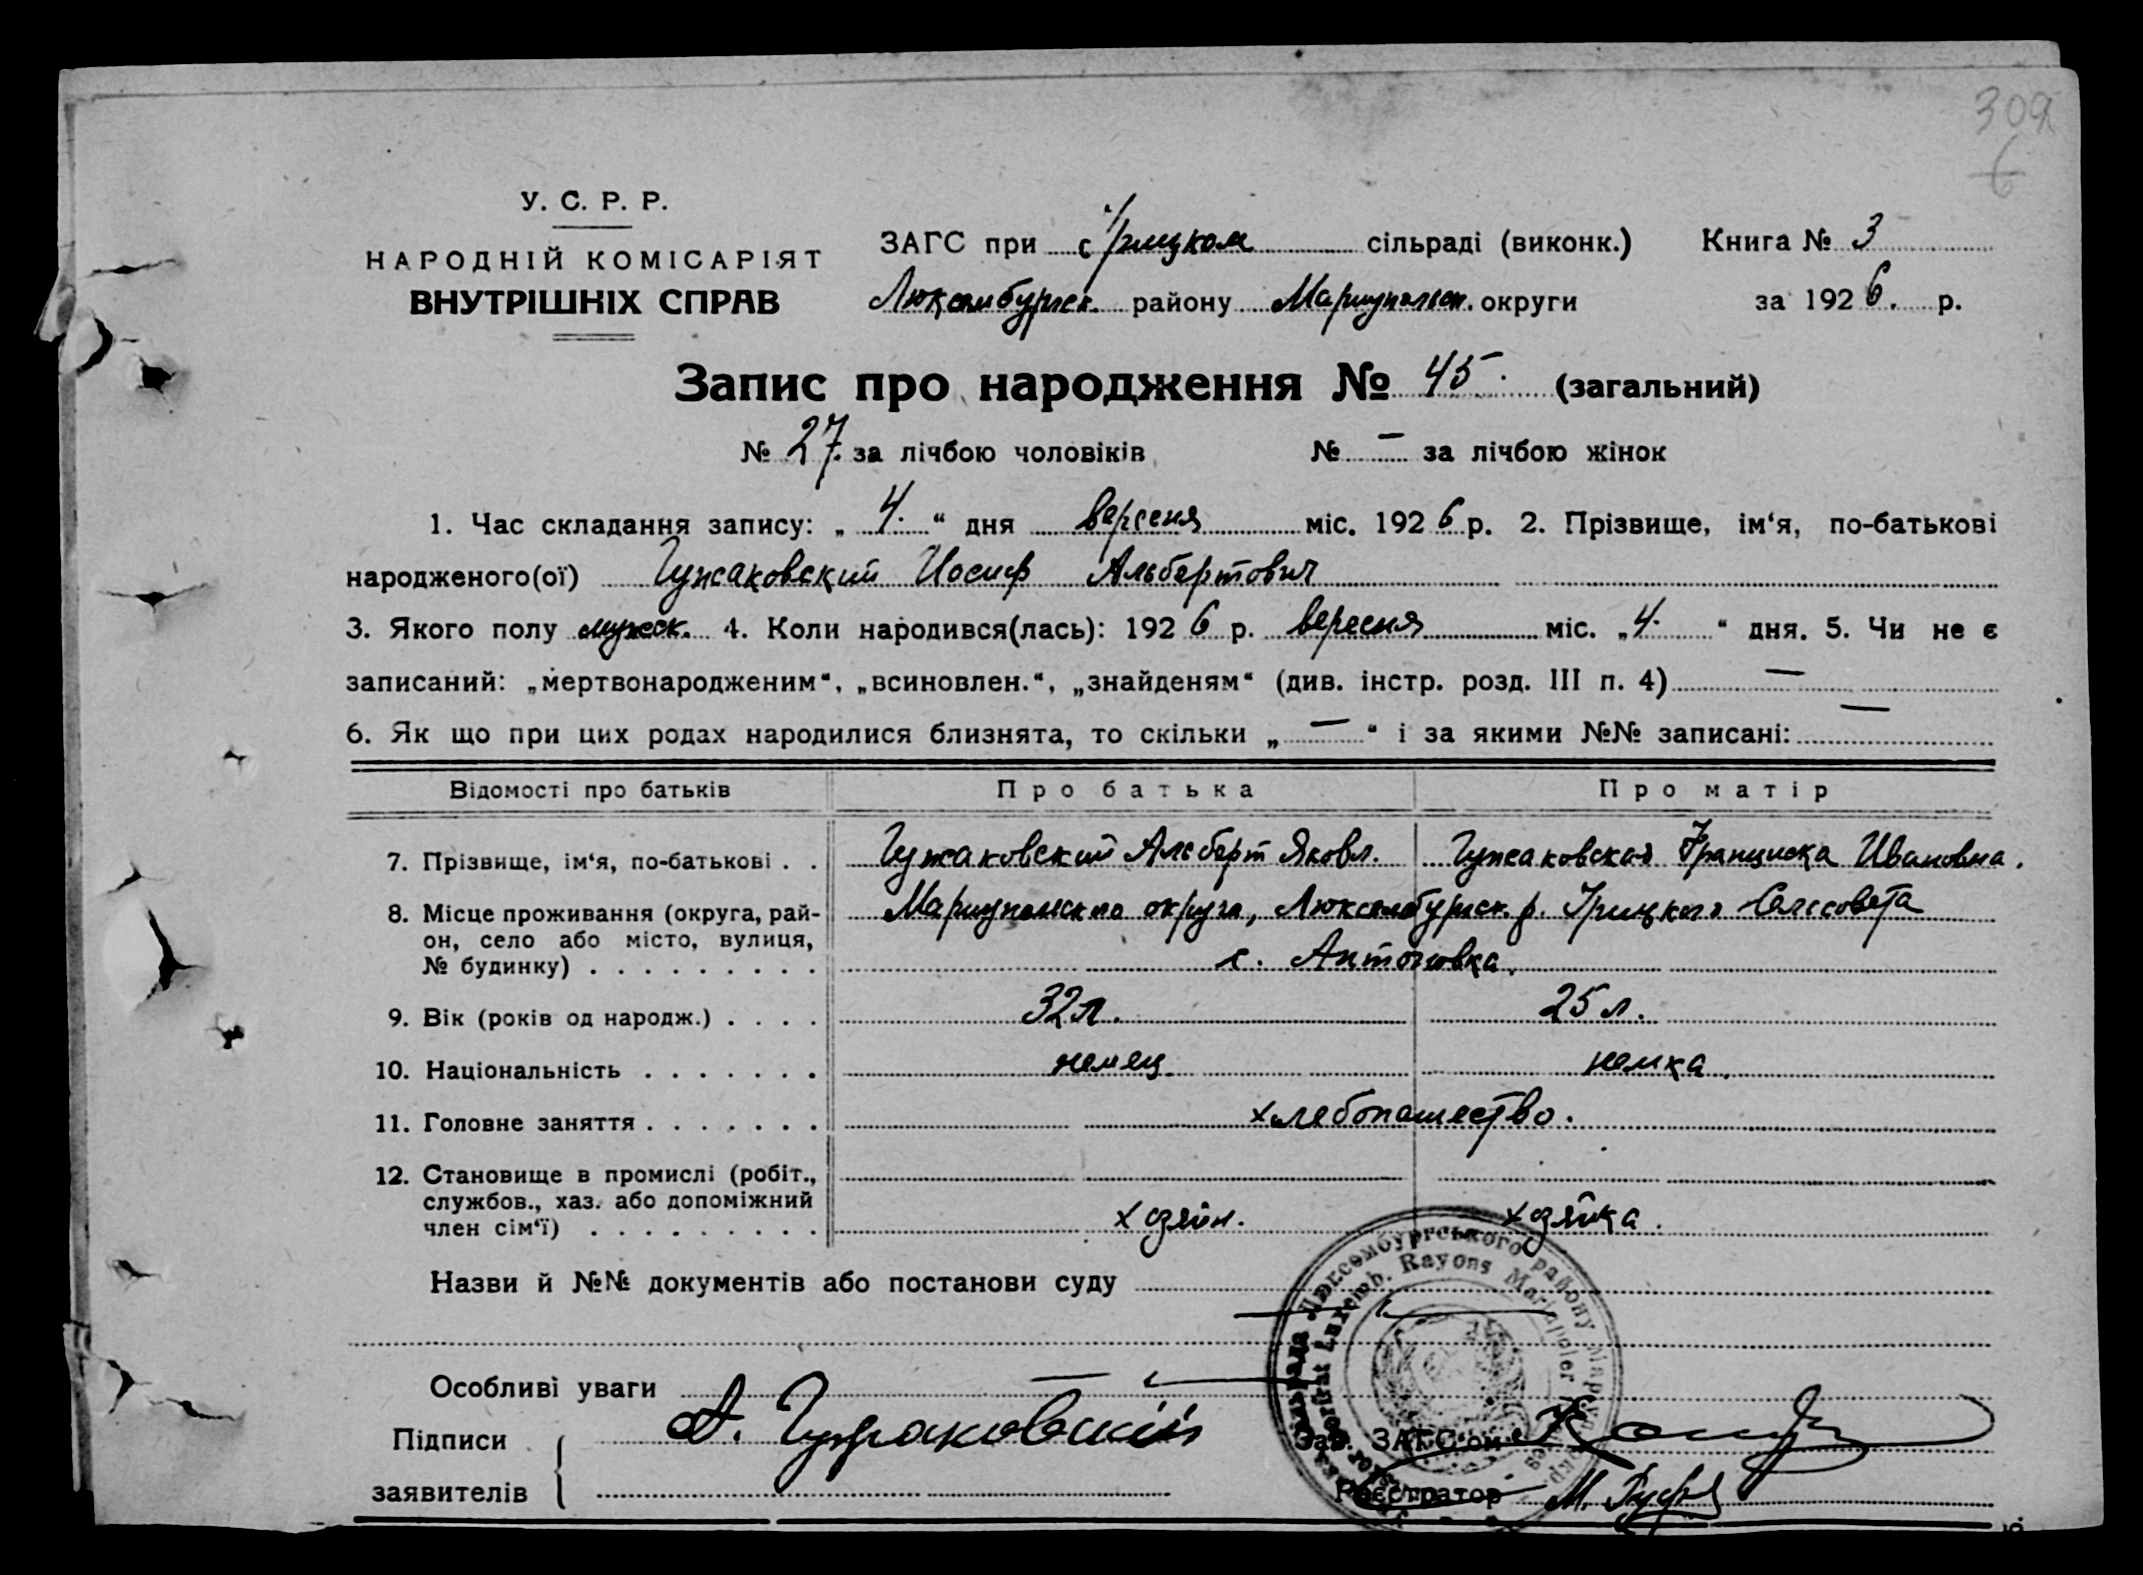 309
6
У. С. Р. Р.
НАРОДНІЙ КОМІСАРІЯТ
ВНУТРІШНІХ СПРАВ
ЗАГС при с. Грицком сільраді (виконк.) Книга № 3
Люксембургск. району Мариупольск. округи за 1926. р.
Запис про народження № 45. (загальний)
№ 27. за лічбою чоловіків № — за лічбою жінок
1. Час складання запису: „ 4. “ дня вересня міс. 1926 р. 2. Прізвище, ім‘я, по-батькові
народженого(ої) Гужаковский Иосиф Альбертович
3. Якого полу мужск. 4. Коли народився(лась): 1926 р. вересня міс. „4.“ дня. 5. Чи не є
записаний: „мертвонародженим“, „всиновлен.“, „знайденям“ (див. інстр. розд. III п. 4) —
6. Як що при цих родах народилися близнята, то скільки „ — “ і за якими №№ записані: —
Відомості про батьків Про батька Про матір
7. Прізвище, ім‘я, по-батькові . . Гужаковский Альберт Яковл. Гужаковская Франциска Ивановна.
8. Місце проживання (округа, рай- Мариупольская округа, Люксембургск. р. Грицкого Сельсовета
он, село або місто, вулиця,
№ будинку) . . . . . . . . . с. Антоновка.
9. Вік (років од народж.) . . . . 32 л. 25 л.
10. Національність . . . . . . . немец. немка.
11. Головне заняття . . . . . . . хлебопашество.
12. Становище в промислі (робіт.,
службов., хаз. або допоміжний
член сім‘ї) . . . . . . . . . хозяйн. хозяйка.
Назви й №№ документів або постанови суду —
Особливі уваги —
Підписи А. Гужаковский Зав. ЗАГС‘ом
заявителів Реєстратор М.
Люксембургського району
Luxemb. Rayons Mariupoler